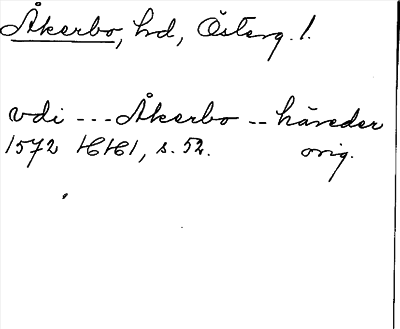 Åkerbo, hd, Österg. l.
vdi --- Åkerbo -- häreder
1572 HH1, s. 52. orig.